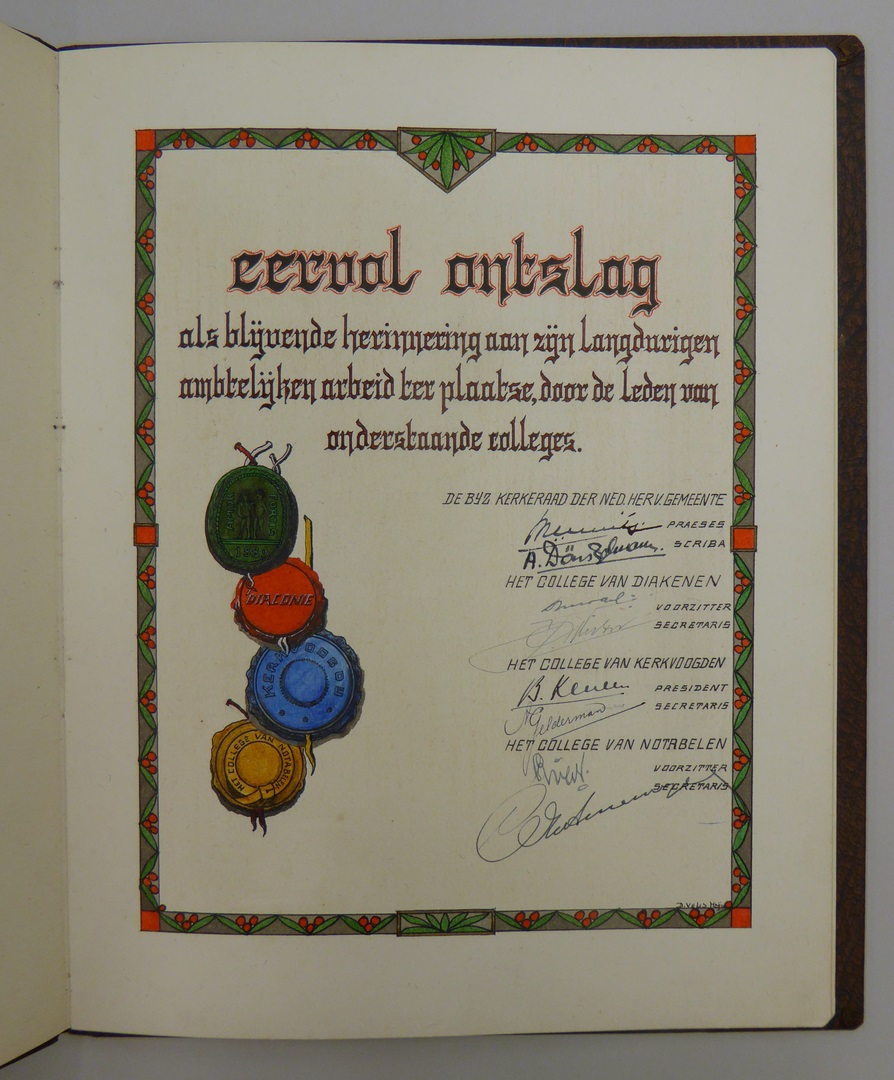 eervol ontslag
als blijvende herinnering aan zijn langdurigen
ambtelijken arbeid ter plaatse, door de leden van
onderstaande colleges.
DE BYZ KERKERAAD DER NED. HERV. GEMEENTE
PRAESES
A. SCRIBA
HET COLLEGE VAN DIAKENEN
VOORZITTER
SECRETARIS
HET COLLEGE VAN KERKVOOGDEN
B. PRESIDENT
Gelderman SECRETARIS
HET COLLEGE VAN NOTABELEN
VOORZITTER
SECRETARIS
DIACONIE
KERKVOOGDY
HET COLLEGE VAN NOTABELEN